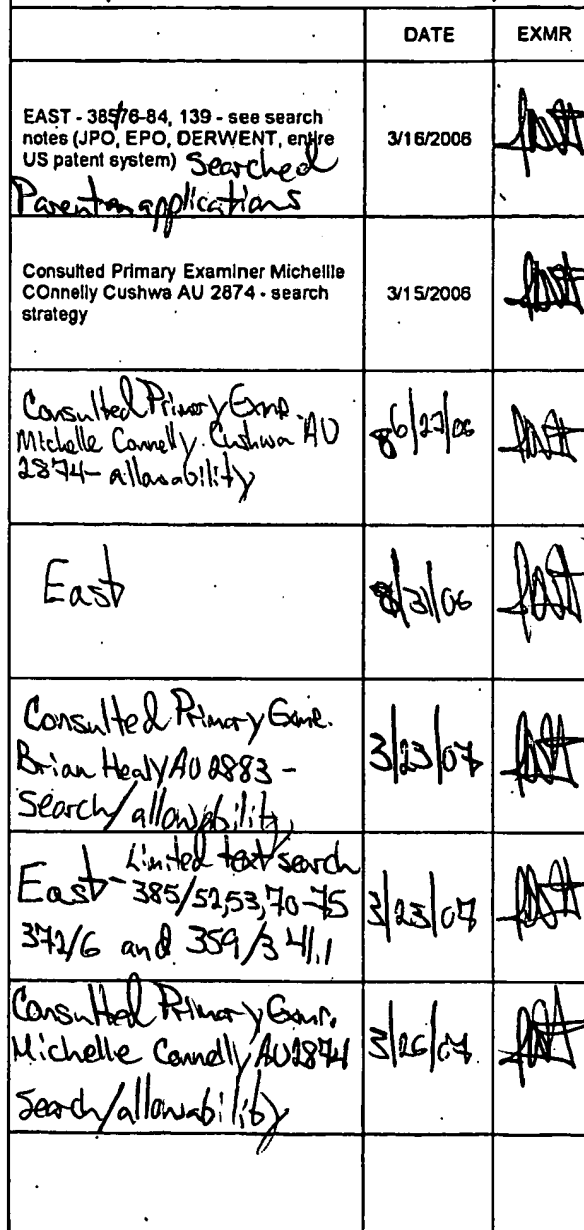 DATE EXMR
EAST - 385/76-84, 139 - see search
notes (JPO, EPO, DERWENT, entire
US patent system) Searched
Parent applications
3/16/2006
Consulted Primary Examiner Michellle
COnnelly Cushwa AU 2874 - search
strategy
3/15/2006
Consulted Primary Exmr.
Michelle Connelly Cushwa AU
2874 - allowability
6/27/06
East
8/31/06
Consulted Primary Exmr.
Brian Healy AU 2883 -
Search/allowability
3/23/07
East - Limited text search
385/52,53,70-75
372/6 and 359/341.1
3/23/07
Consulted Primary Exmr.
Michelle Connelly AU2874
Search/allowability
3/26/07